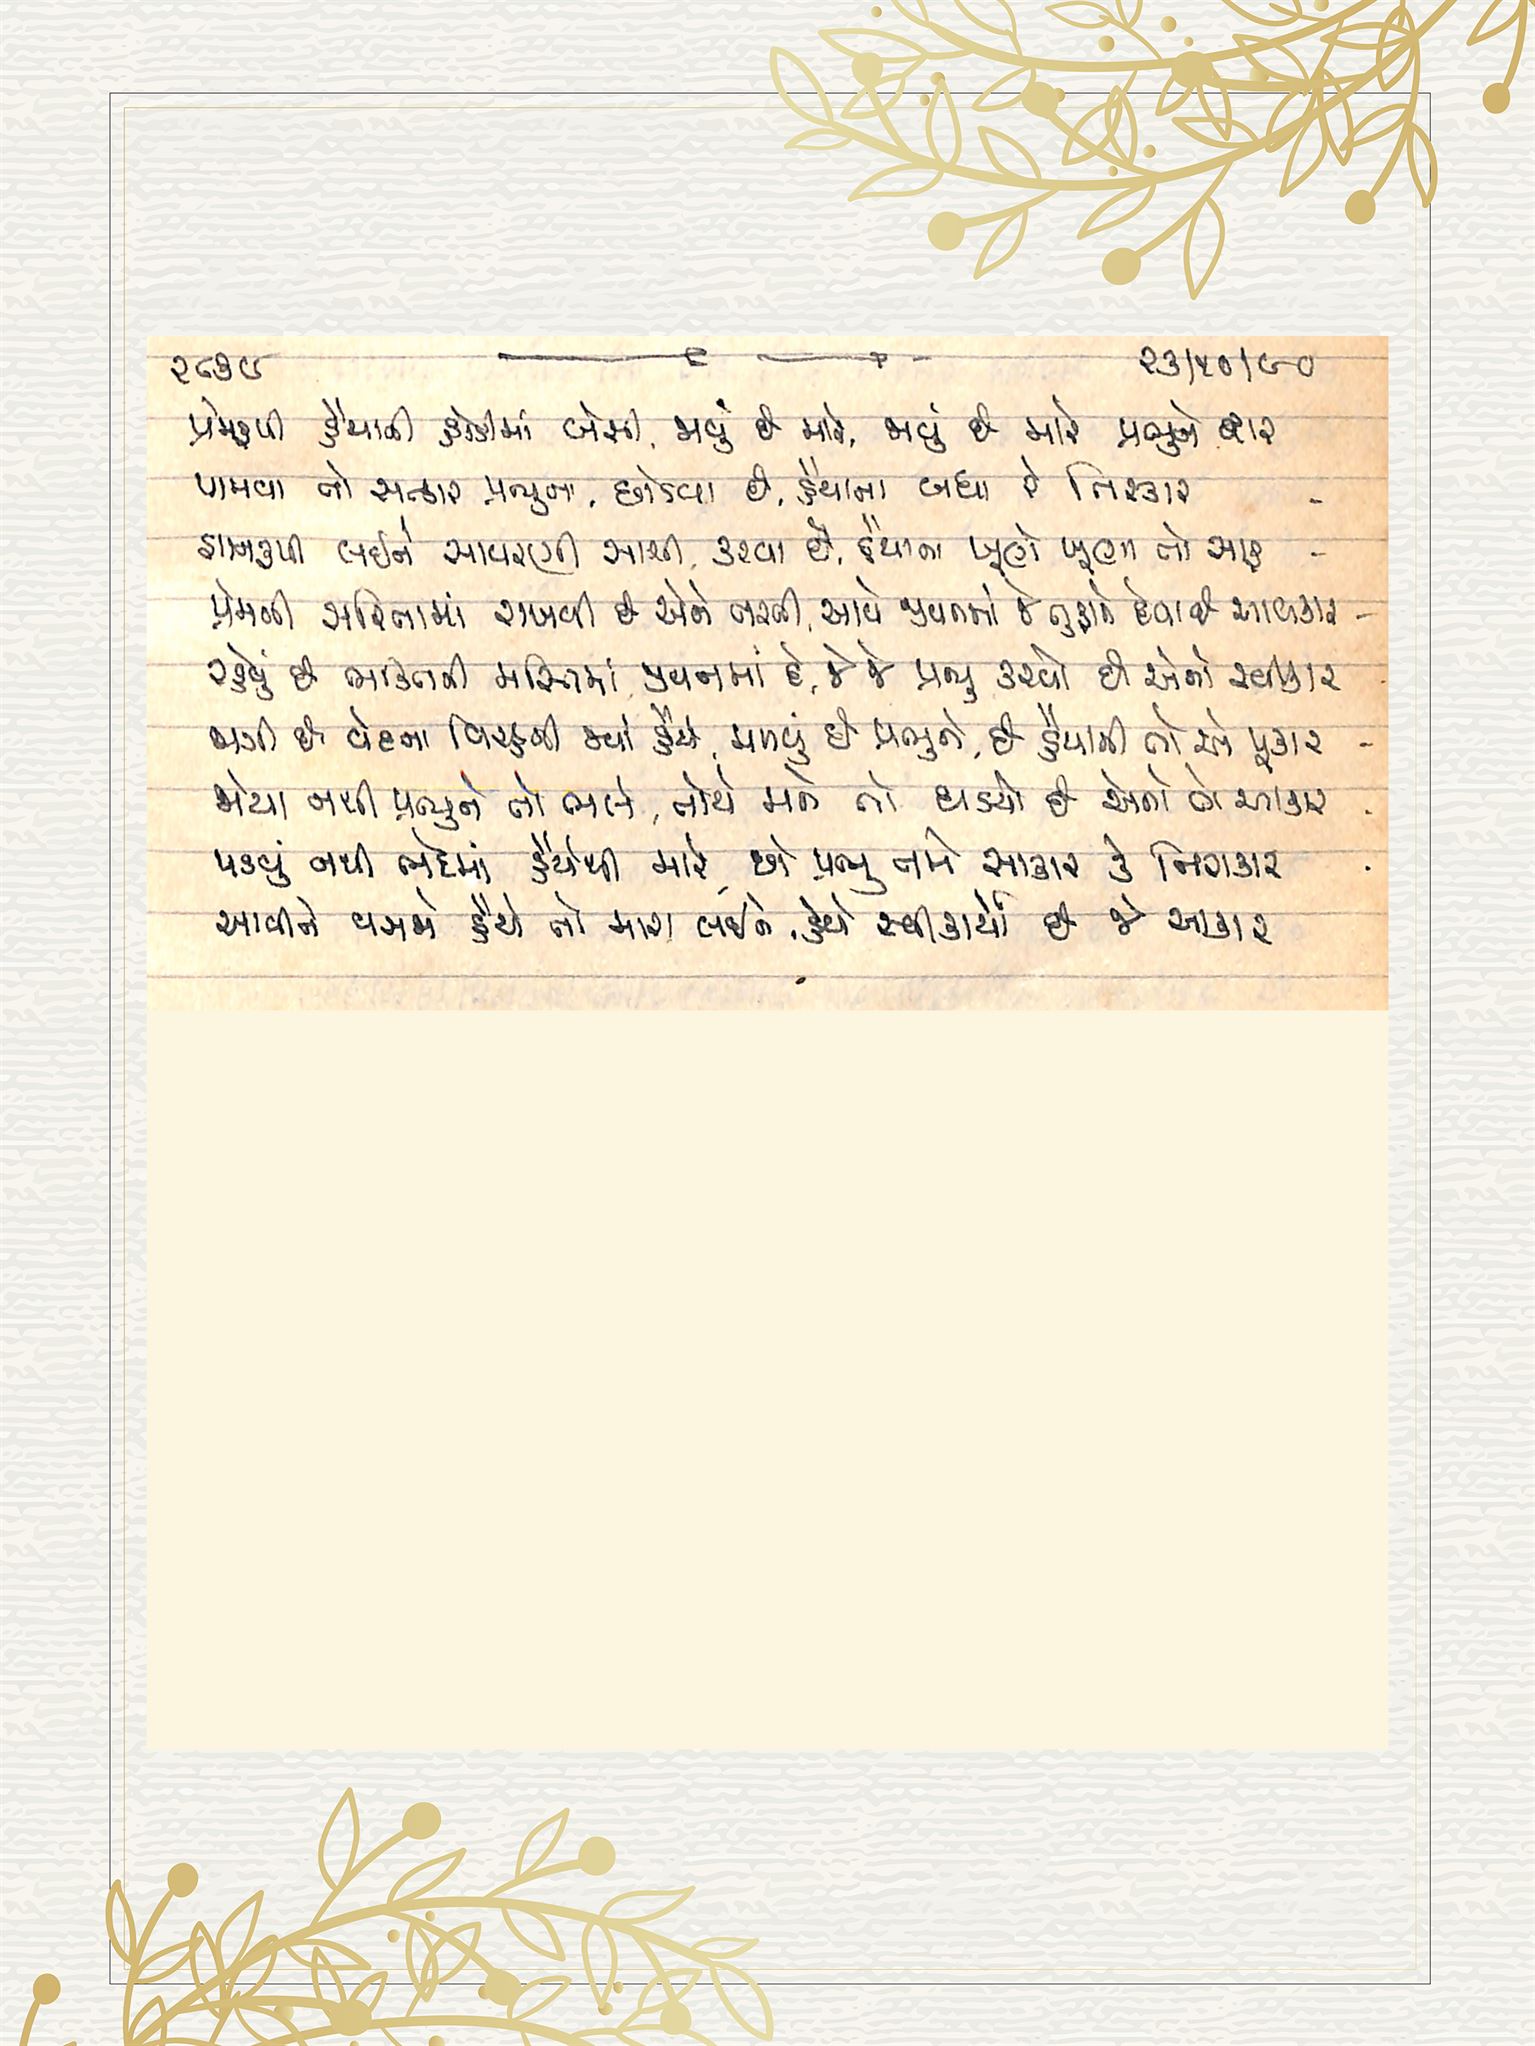 ૨૮૩૯ ૨૩/૧૦/૯૦
પ્રેમરૂપી હૈયાની હોડીમાં બેસી, જાવું છે મારે, જાવું છે મારે પ્રભુને દ્વાર
પામવા તો સત્કાર પ્રભુના, છોડવા છે, હૈયાના બધા રે તિરસ્કાર -
જ્ઞાનરૂપી લઈને સાવરણી સાચી, કરવા છે, હૈયાના ખૂણે ખૂણા તો સાફ -
પ્રેમની સરિતામાં રાખવી છે એને તરતી, આવે જીવનમાં જે તુફાને દેવા છે આવકાર -
રહેવું છે ભક્તિની મસ્તિમાં જીવનમાં રે, જે જે પ્રભુ કરવો છે એનો સ્વીકાર
જાગી છે વેદના વિરહની જ્યાં હૈયે, મળવું છે પ્રભુને, છે હૈયાની તો એ પૂકાર -
જોયા નથી પ્રભુને તો ભલે, તોયે મને તો ઘડયો છે એનો રે આકાર
પડવું નથી ભેદમાં હૈયેથી મારે, છો પ્રભુ તમે સાકાર કે નિરાકાર
આવીને વસજો હૈયે તો મારા લઈને, હૈયે સ્વીકાર્યો છે જે આકાર